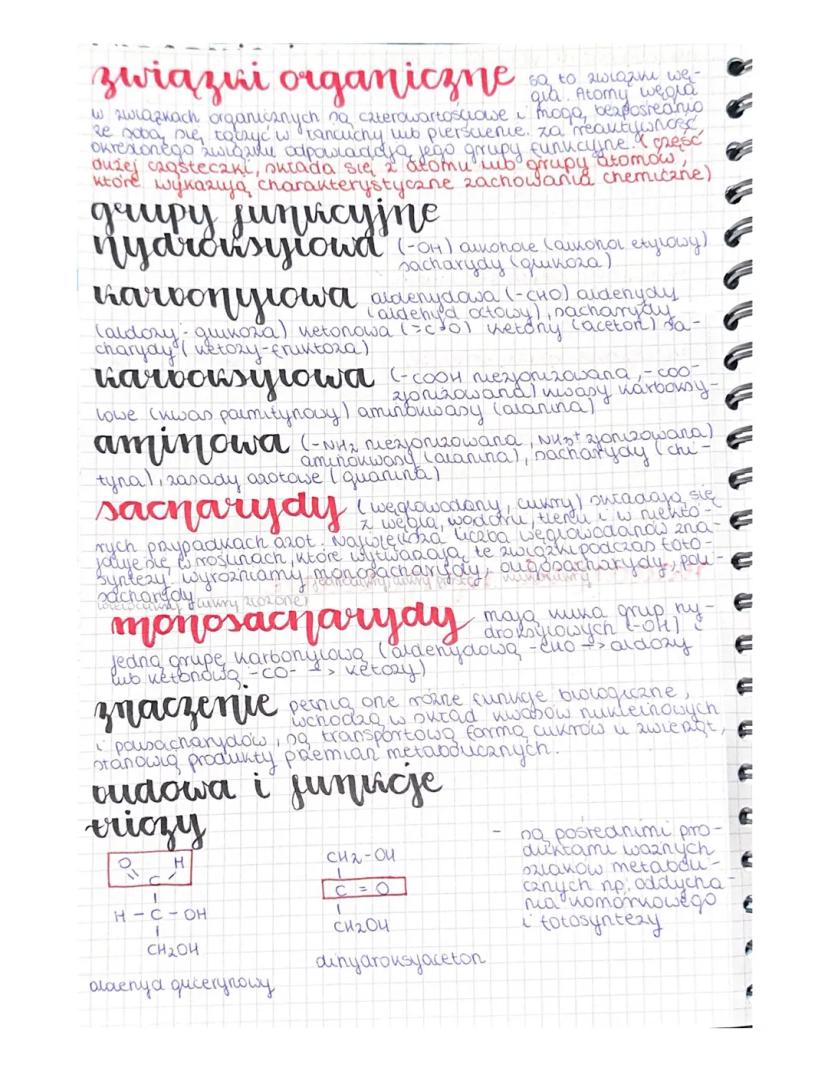 związki organiczne są to związki wę-
gla. Atomy węgla
w związkach organicznych są czterowartościowe i mogą bezpośrednio
ze sobą się łączyć w łańcuchy lub pierścienie. za reaktywność
określonego związku odpowiadają jego grupy funkcyjne. (część
dużej cząsteczki, składa się z atomu lub grupy atomów,
które wykazują charakterystyczne zachowania chemiczne)
grupy funkcyjne
hydroksylowa (-OH) alkohole (alkohol etylowy)
sacharydy (glukoza)
karbonylowa aldehydowa (-CHO) aldehydy
(aldehyd octowy), sacharydy
(aldozy - glukoza) ketonowa (>C=O) ketony (aceton) sa-
charydy (ketozy-fruktoza)
karboksylowa (-COOH niezjonizowana, -COO-
zjonizowana) kwasy karboksy-
lowe (kwas palmitynowy) aminokwasy (alanina)
aminowa (-NH2 niezjonizowana, NH3+ zjonizowana)
aminokwasy (alanina), sacharydy (chi-
tyna), zasady azotowe (guanina)
sacharydy (węglowodany, cukry) składają się
z węgla, wodoru, tlenu i w niektó-
rych przypadkach azot. Największa liczba węglowodanów zna-
jduje się w roślinach, które wytwarzają te związki podczas foto-
syntezy. wyróżniamy monosacharydy, oligosacharydy, poli-
sacharydy
monosacharydy mają kilka grup hy-
droksylowych (-OH) i
jedną grupę karbonylową (aldehydową -CHO -> aldozy
lub ketonową -CO- -> ketozy)
znaczenie pełnią one różne funkcje biologiczne,
wchodzą w skład kwasów nukleinowych
i polisacharydów, są transportową formą cukrów u zwierząt,
stanowią produkty przemian metabolicznych.
budowa i funkcje
triozy
- są pośrednimi pro-
duktami ważnych
szlaków metaboli-
cznych np. oddycha-
nia komórkowego
i fotosyntezy
O H
C
H - C - OH
CH2OH
aldehyd glicerynowy
CH2-OH
C = O
CH2OH
dihydroksyaceton